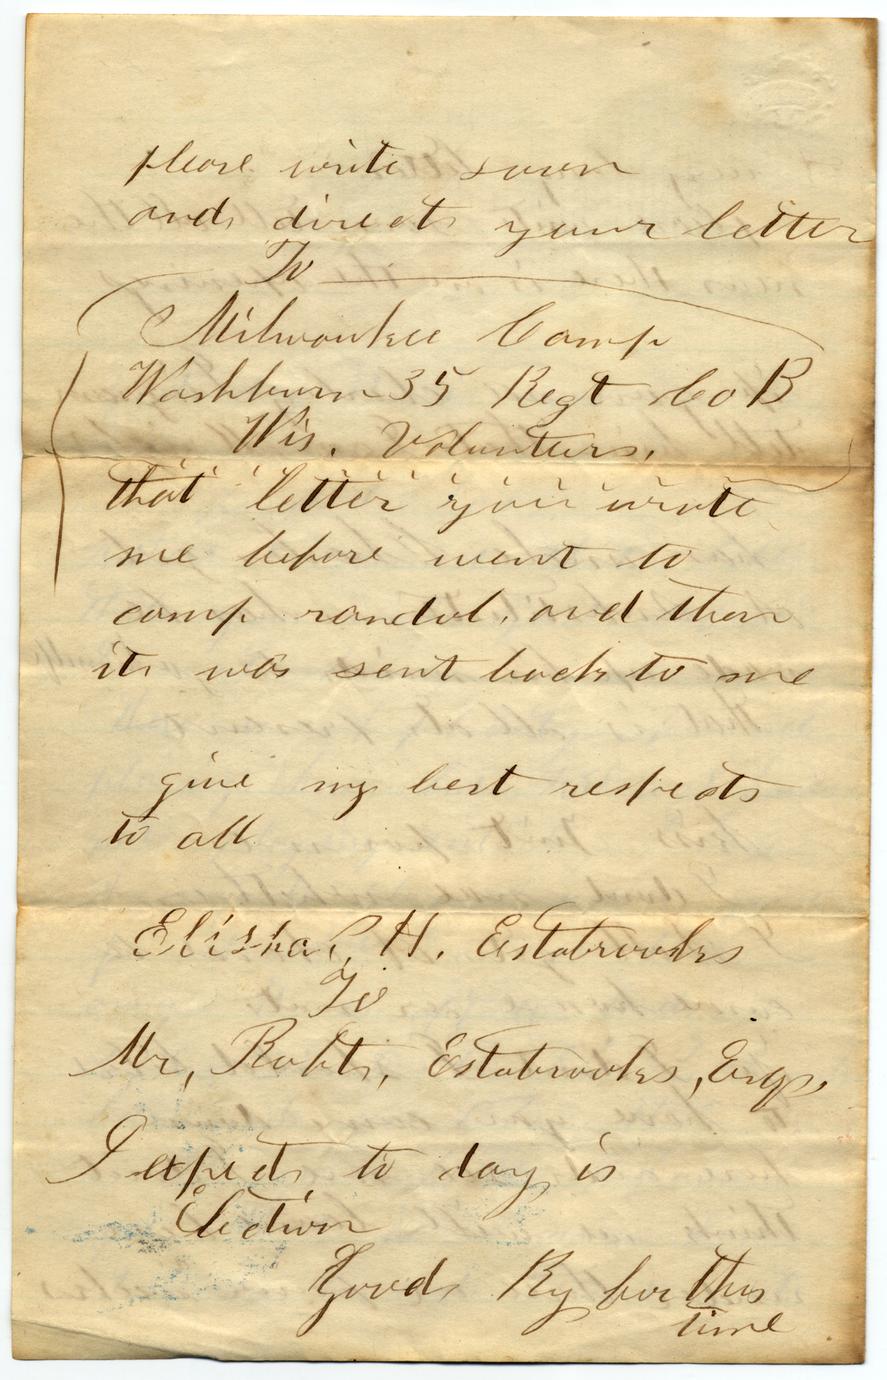 please write soon
and direct your letter
To
Milwaukee Camp
Washburn 35 Regt Co B
Wis. Volunteers,
that letter you wrote
me before went to
camp randol. and then
it was sent back to me
give my best respects
to all
Elisha P. H. Estabrooks
To
Mr, Robt, Estabrooks, Esqr,
I expect to day is
Election
Good By for this
time